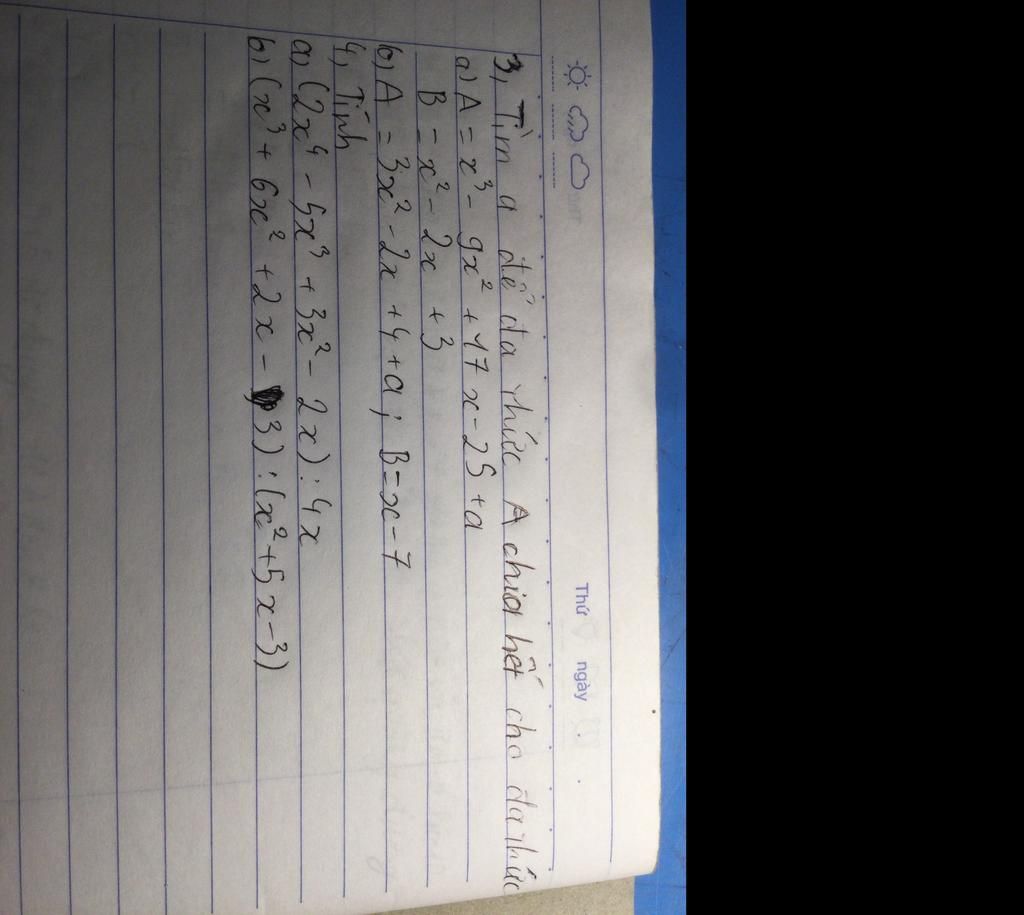 Thứ ngày
3, Tìm a để đa thức A chia hết cho đa thức
a) A = x³ - 9x² + 17x - 25 + a
B = x² - 2x + 3
b) A = 3x² - 2x + 4 + a; B = x - 7
4, Tính
a) (2x⁴ - 5x³ + 3x² - 2x) : 4x
b) (x³ + 6x² + 2x - 3) : (x² + 5x - 3)